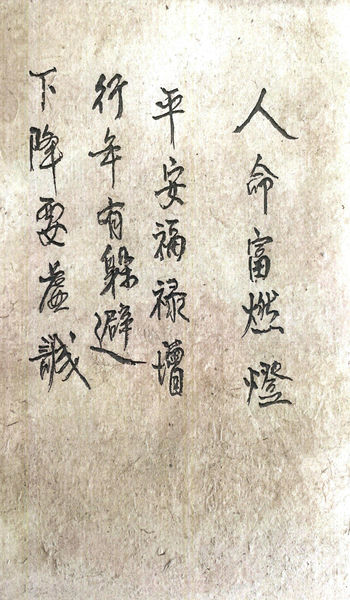 人命富燃燈
平安福祿增
行年有躲避
下降要虔誠